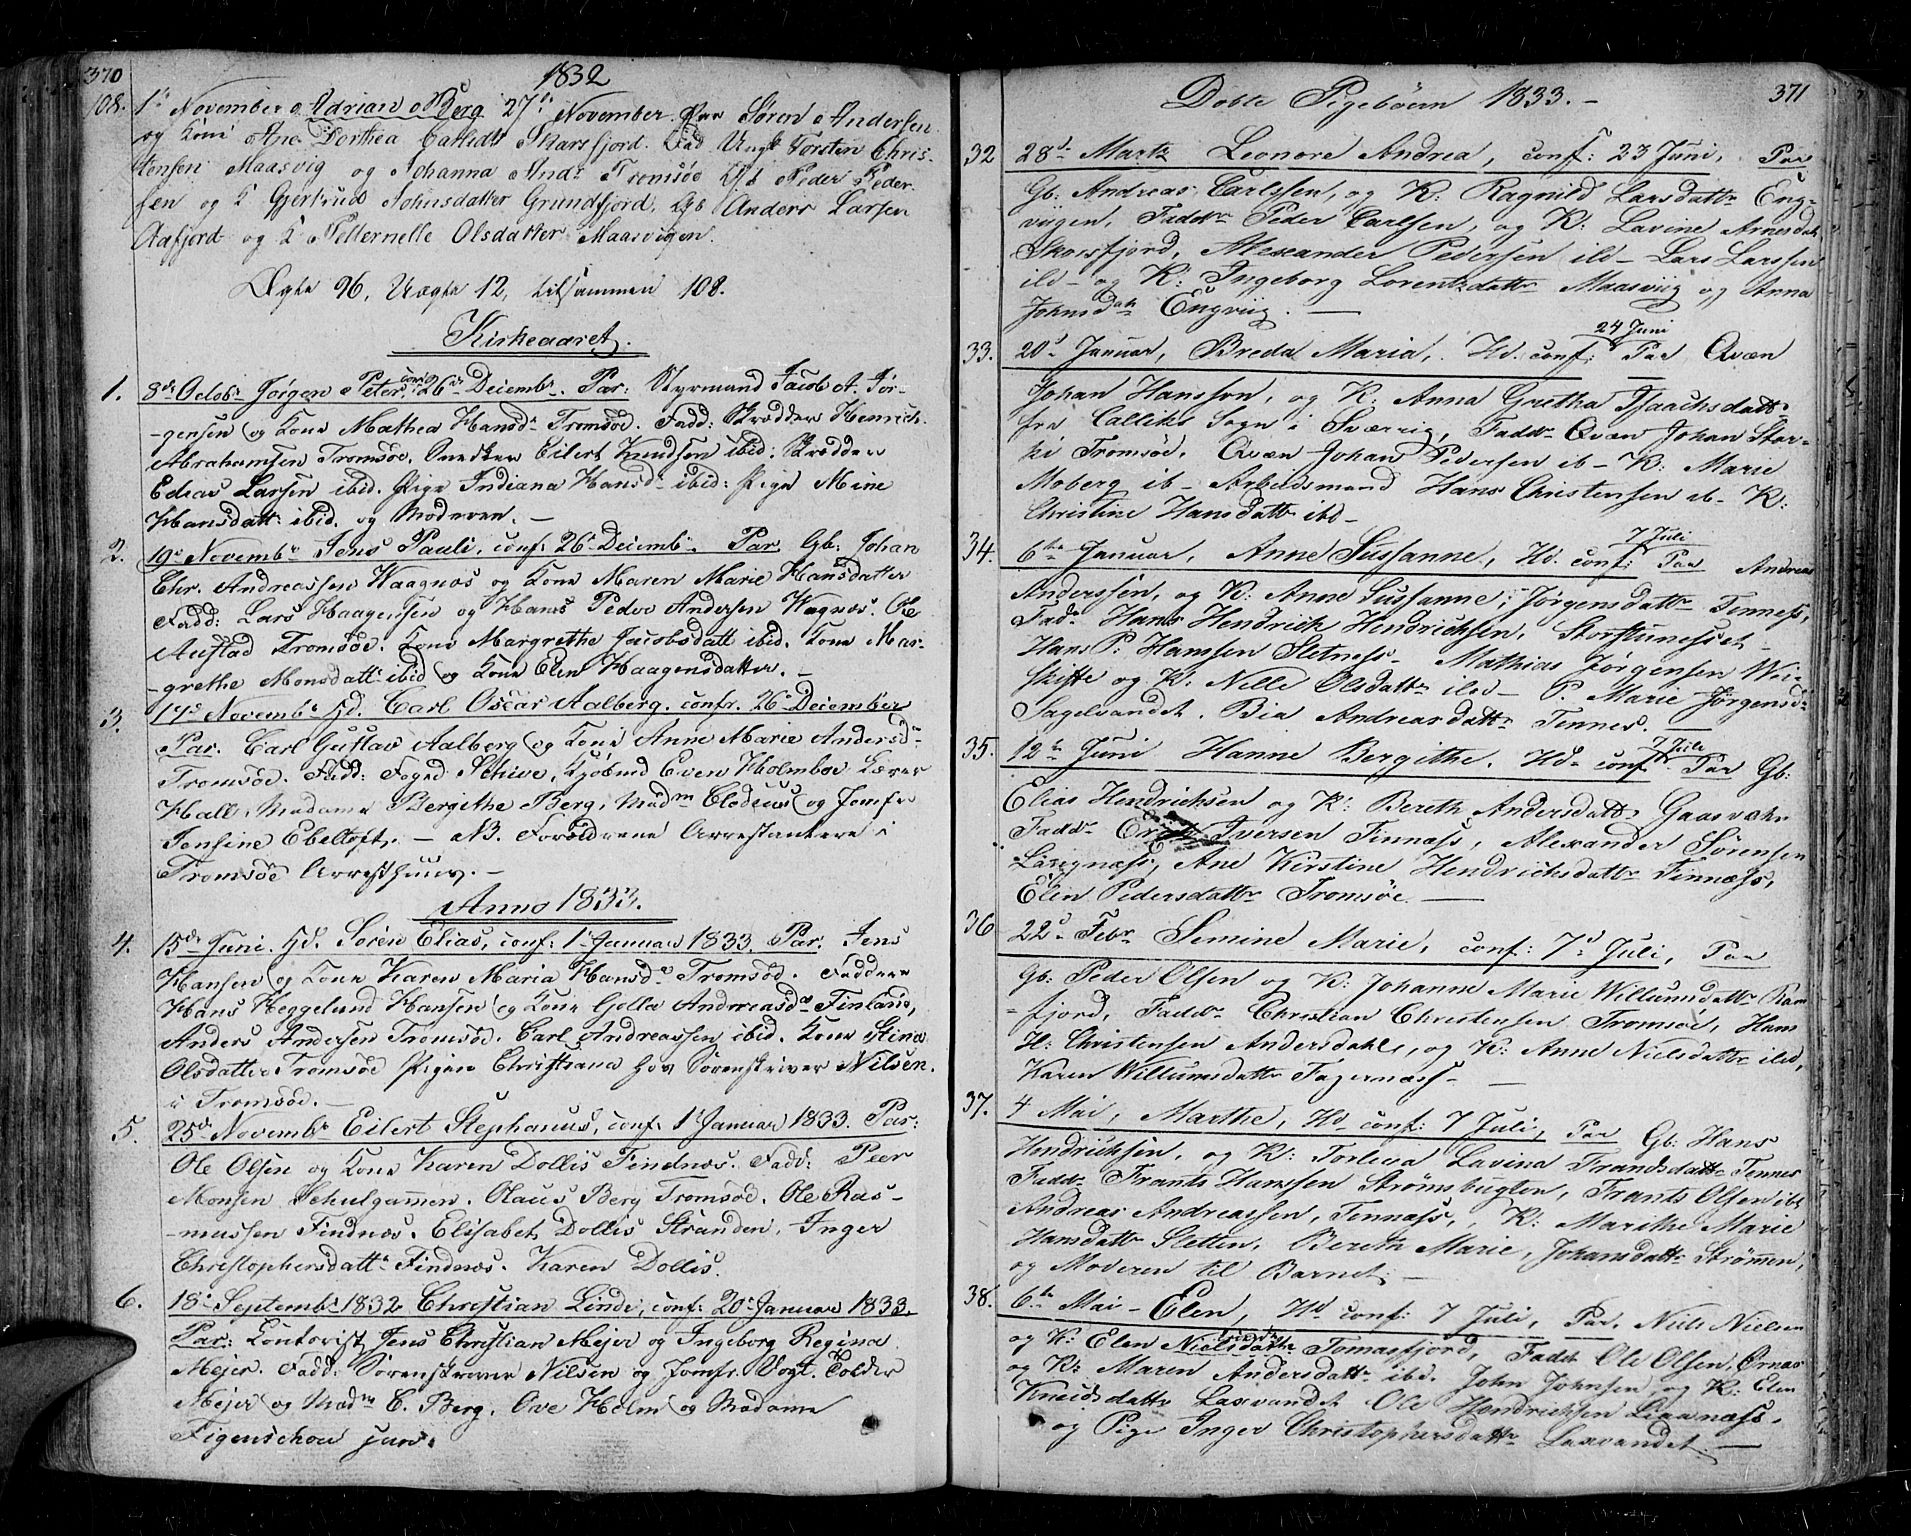 370
1832
108. 1te November Adrian Berg 27de November. Par Søren Andersen
og Kone Ane Dorthea Skarsfjord. Fad Ungk Torsten Chris-
tensen Maasvig og Johanna And: Tromsøe Peder Peder-
sen og K Gjertrud Johnsdatter Grundfjord. Gb Anders Larsen
og K Pellernelle Olsdatter Maasvigen.
Ægte 96, Uægte 12, tilsammen 108.
Kirkeaaret.
1. 3de Octobr Jørgen Peter, conf. 26de Decembr. Par: Styrmand Jacob A. Jør-
-gensen og Kone Mathea Hansd: Tromsøe. Fadd: Skrædder Henrich
Abrahamsen Tromsøe, Snedker Eilert Knudsen ibid: Skrædder
Larsen ibid. Pige Indiana Hansd: ibid: Pige Mine
Hansdatt: ibid. og Moderen. —
2. 19de Novembr Jens Pauli, conf: 26de Decembr. Par. Gb: Johan
Chr. Andreassen Waagnæs og Kone Maren Marie Hansdatter
Fadd: Lars Haagensen og Hans Peder Andersen Wagnæs. Ole
Austad Tromsøe. Kone Margrethe Jacobsdatt ibid. Kone Mar-
-grethe Monsdatt: ibid og Kone Elen Haagensdatter. —
3. 17de Novembr Hd. Carl Oscar Aalberg. confr. 26de December
Par. Carl Gustav Aalberg og Kone Anne Marie Andersd:
Tromsøe. Fadd: Foged Schive, Kjøbmd Even Holmboe Lærer
Hall, Madame Bergithe Berg, Madm Clodius og Jomfr
Jensine Ebeltoft. — NB. Forældrene Arrestantere i
Tromsøe Arresthuus. —
Anno 1833.
4. 15de Juni. Hd. Søren Elias, conf: 1te Januar 1833. Par: Jens
Hansen og Kone Karen Maria Hansd: Tromsøe. Faddere
Hans Heggelund Hansen og Kone Golla Andreasd: Finland,
Anders Andersen Tromsøe. Carl Andreassen ibid. Kone Stina
Olsdatter Tromsøe Pigen Christiana hos Sorenskriver Nilsen.
i Tromsøe. —
5. 25de Novembr Eilert Stephanus, conf: 1te Januar 1833. Par:
Ole Olsen og Kone Karen Dollis Findnæs. Fadd: Peer
Monsen Schulgammen. Olaus Berg Tromsøe. Ole Ras-
-mussen Findnæs. Elisabet Dollis Stranden, Inger
Christophersdatt: Findnæs. Karen Dollis.
6. 18de Septembr 1832 Christian Linde, conf: 20de Januar 1833.
Par: Contorist Jens Christian Mejer og Ingeborg Regina
Mejer. Fadd: Sorenskriver Nilsen og Jomfr. Vogt. Tolder
Mejer og Madm C. Berg. Ove Holm og Madame
Figenschou jun.
371
Døbte Pigebøern 1833. —
32 28de Martz Leonore Andrea, conf: 23 Juni, Par
Gb: Andreas Carlssen, og K: Ragnild Larsdattr Eng-
vigen, Faddr Peder Carlsen, og K: Lavine Arnesdatr
Skorsfjord, Alexander Pedersen ibd — Lars Larssen
ibd — og K: Ingeborg Lorentzdattr Maasviig og Anna
Johnsdatr Engviig. —
24 Juni
33. 20de Januar, Breda Maria, Hd. conf: Par Qvæn
Johan Hansson, og K: Anna Gretha Isaachsdattr
fra Calliks Sogn i Sværrig, Faddr Qvæn Johan Star-
ki Tromsøe, Qvæn Johan Pedersen ib — K: Marie
Moberg ib — Arbeidsmand Hans Christensen ib — K:
Christine Hansdattr ibd —
7 Juli
34. 6te Januar, Anne Sussanne, Hd. conf: Par Andreas
Anderssen, og K: Anne Sussanne, Jørgensdattr Tenness,
Fadr Hans Hendrich Hendrichsen, Storstuness —
Hans P. Hanssen Sletness — Mathias Jørgensen Wei-
skifte og K: Nille Olsdattr ibd — P. Marie Jørgensd:
Sagelvandet. Bia Andreasdattr Tennes. —
7 Juli
35. 12te Juni Hanne Bergithe. Hd. conf: Par Gb:
Elias Hendrichsen og K: Bereth Andersdattr Gaasvæhr
Faddr Iversen Finnæss, Alexander Sørensen
Ane Kirstine Hendrichsdattr Finnæss,
Elen Pedersdattr Tromsøe. —
36 22de Febr Semine Marie, conf: 7de Juli, Par
Gb: Peder Olsen og K: Johanne Marie Willumsdattr Ram-
-fjord, Faddr Christian Christensen Tromsøe, Hans
H: Christensen Andersdahl, og K: Anne Nielsdattr ibd,
Karen Willumsdattr Fagernæss — —
37. 4 Mai, Marthe, Hd. conf: 7 Juli, Par Gb: Hans
Hendrichsen, og K: Torlena Lavina Frandsdattr Tennes
Faddr Frants Hanssen Strømsbugten, Frants Olsen ibd
Andreas Andreassen, Tennæss, K: Marithe Marie
Hansdattr Sletten. Bereth Marie, Johansdattr Strømmen,
og Moderen til Barnet. —
38. 6te Mai — Elen, Hd conf: 7 Juli, Par. Niels Nielsen
og K: Elen Nielsdattr Tomasfjord, Fadd Ole Olsen, Ørnæs
og K: Maren Andersdattr ibd. John Johnsen, og K: Elen
Knudsdattr Laxvandet Ole Hendrichsen
og Pige Inger Christophersdattr Laxvandet. —